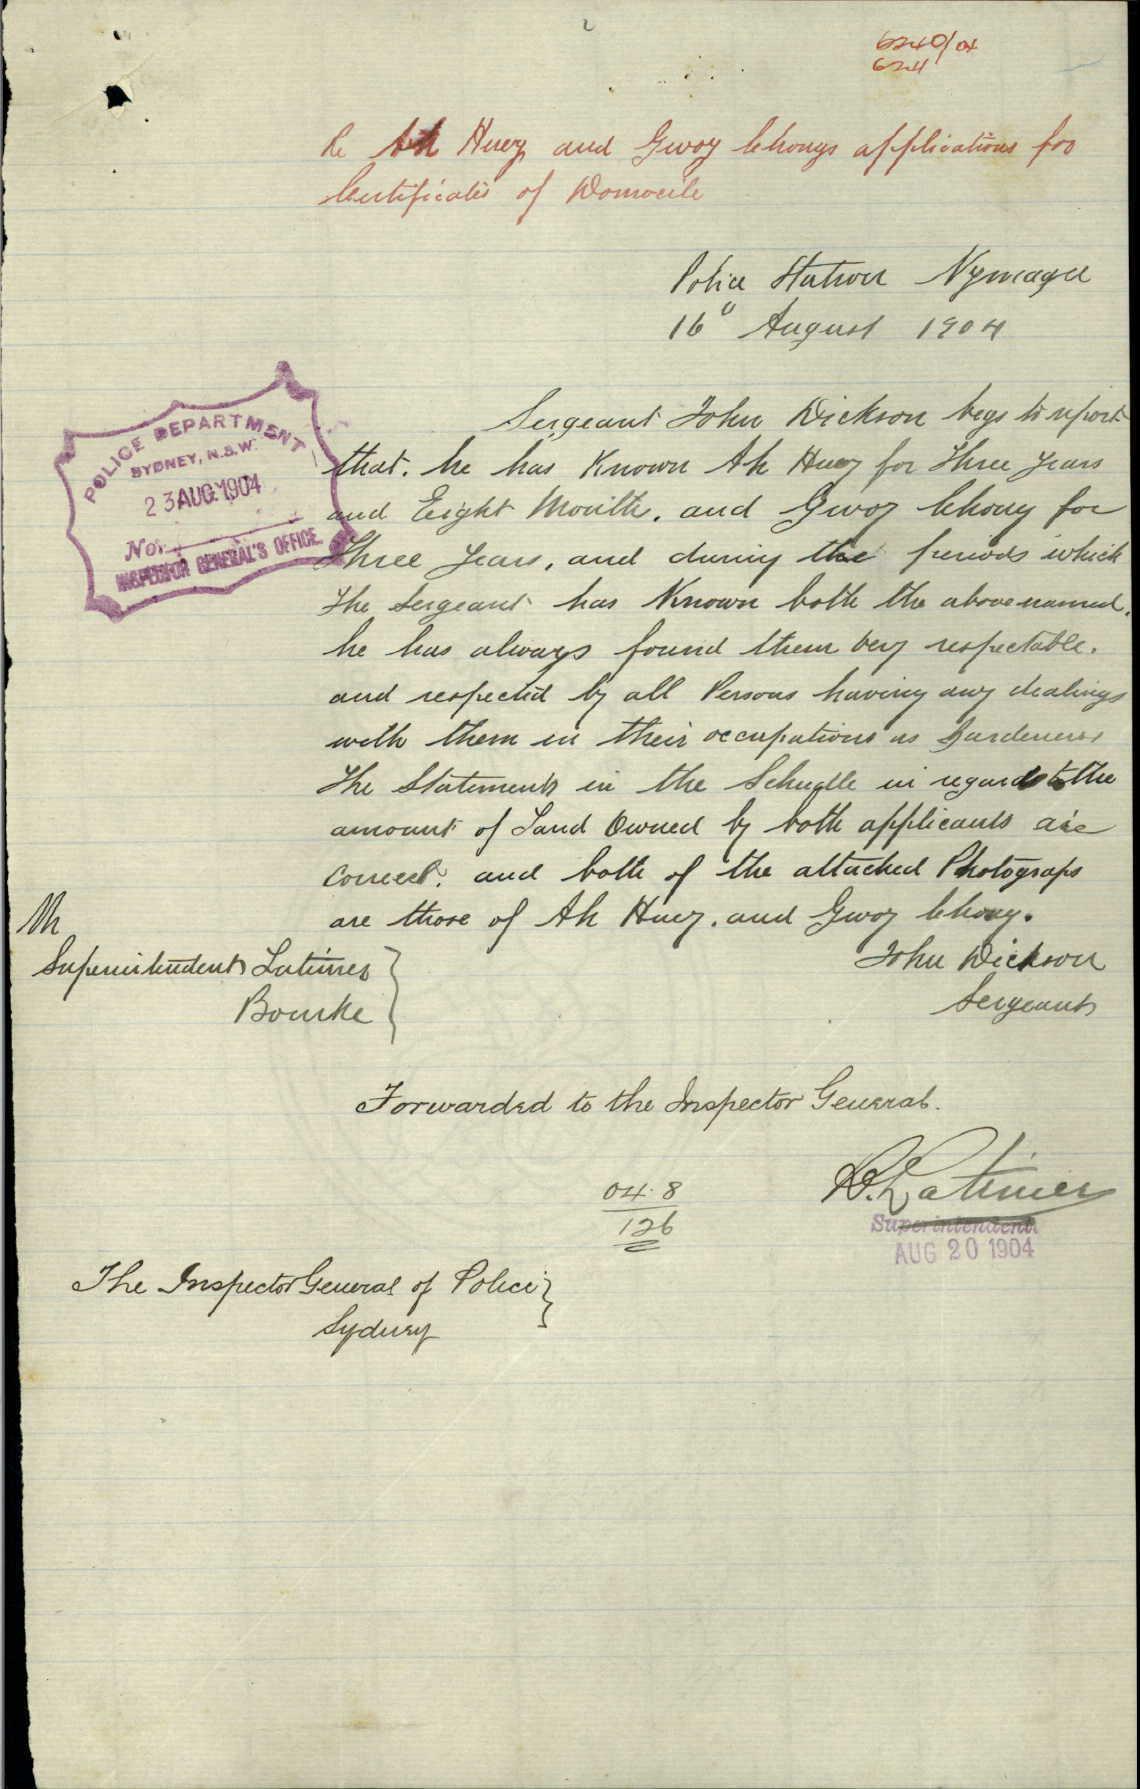 6240/04
6241
Re Ah Huey and Gwoy Chongs applications for
Certificates of Domocile
Police Station Nymagee
16" August 1904
POLICE DEPARTMENT
SYDNEY, N.S.W.
23 AUG. 1904
No.
INSPECTOR GENERAL'S OFFICE.
Sergeant John Dickson begs to report
that. he has Known Ah Huey for Three years
and Eight Months. and Gwoy Chong for
Three years, and during the periods which
the Sergeant has Known both the abovenamed.
he has always found them very respectable.
and respected by all Persons having any dealings
with them in their occupations as Gardeners
The Statements in the Schudle in regard to the
amount of Land Owned by both applicants are
correct. and both of the attached Photograps
are those of Ah Huey. and Gwoy Chong.
John Dickson
Sergeant
Mr
Superintendent Latimer
Bourke
Forwarded to the Inspector General.
04.8
126
Latimer
Superintendent.
AUG 20 1904
The Inspector General of Police
Sydney